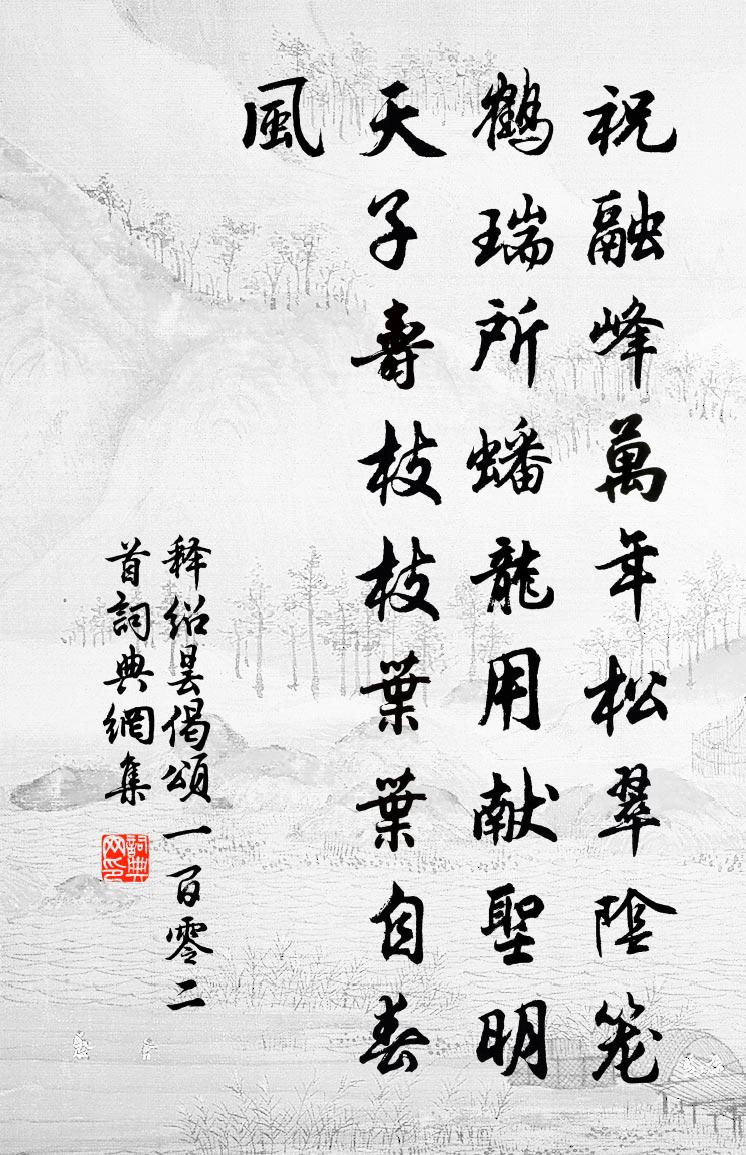 祝融峰萬年松翠陰笼
鶴瑞所蟠龍用献聖明
天子壽枝枝葉葉自春
風
释绍昙偈頌一百零二
首詞典網集
詞典
网印